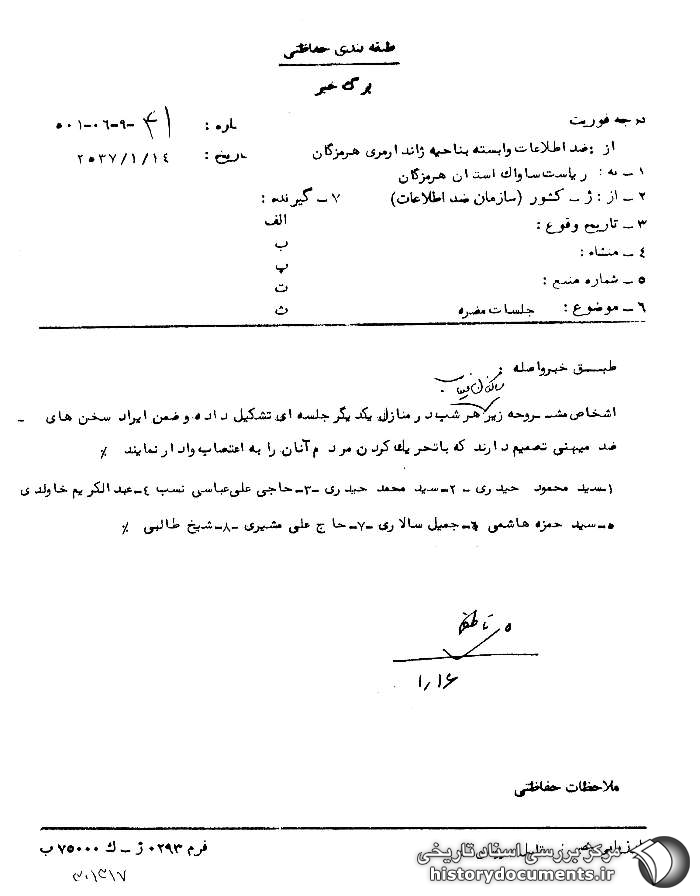 طبقه بندی حفاظتی
برگ خبر
درجه فوریت
شماره : ۴۱-۵۰۱-۰۶-۹
از : ضد اطلاعات وابسته بناحیه ژاندارمری هرمزگان
تاریخ : ۲۵۳۷/۱/۱۴
۱ـ به : ریاست ساواك استان هرمزگان
۲ـ از : ژ ـ کشور (سازمان ضد اطلاعات)
۷ـ گیرنده :
۳ـ تاریخ وقوع :
الف
۴ـ منشاء :
ب
پ
۵ـ شماره منبع :
ت
۶ـ موضوع : جلسات مضره
ث
طبق خبر واصله
اشخاص مشروحه زیر هر شب در منازل یکدیگر جلسه ای تشکیل داده و ضمن ایراد سخن های ـ
ضد میهنی تصمیم دارند که با تحریك کردن مردم آنان را به اعتصاب وادار نمایند ٪
۱ـ سید محمود حیدری ـ ۲ـ سید محمد حیدری ـ۳ـ حاجی علی عباسی نسب ۴ـ عبدالکریم خاولدی
۵ـ سید حمزه هاشمی ۶ـ جمیل سالاری ـ۷ـ حاج علی مشیری ـ۸ـ شیخ طالبی ٪
۱٫۱۶
ملاحظات حفاظتی
فرم ۰۲۹۳ ژ ـ ك ۷۵۰۰۰ ب
مرکز بررسی اسناد تاریخی
historydocuments.ir